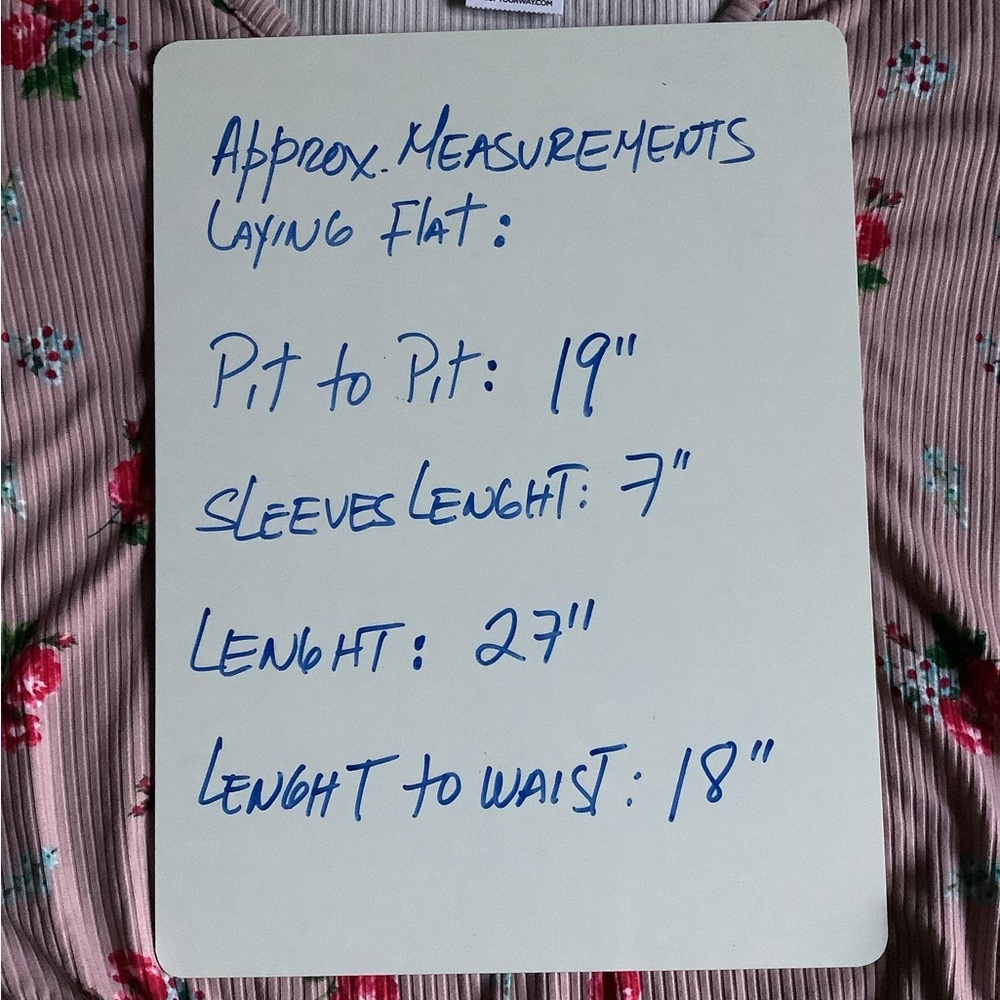 APPROX. MEASUREMENTS
LAYING FLAT:
Pit to Pit: 19"
SLEEVES LENGHT: 7"
LENGHT: 27"
LENGHT to WAIST: 18"